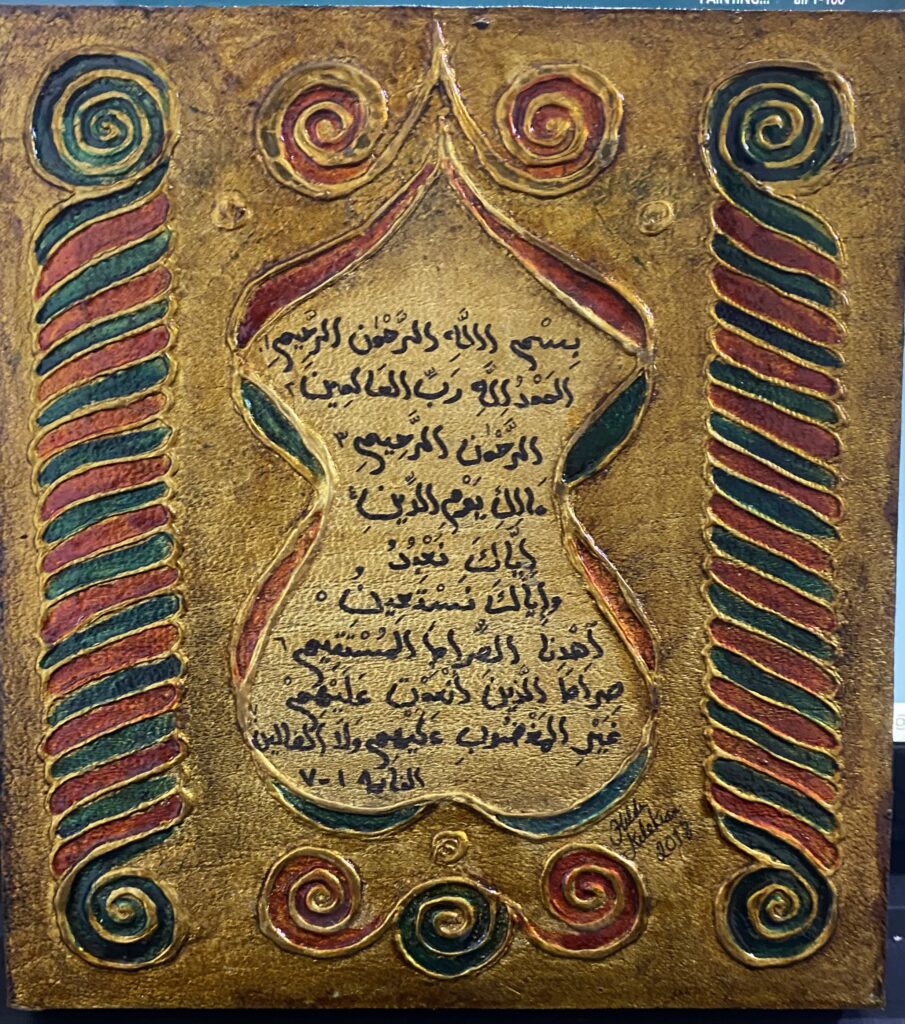 بِسْمِ اللَّهِ الرَّحْمٰنِ الرَّحِيمِ ١
الحَمْدُ لِلَّهِ رَبِّ العَالَمِينَ ٢
الرَّحْمٰنِ الرَّحِيمِ ٣
مَالِكِ يَوْمِ الدِّينِ ٤
إِيَّاكَ نَعْبُدُ
وإِيَّاكَ نَسْتَعِينُ ٥
اَهْدِنَا الصِّرَاطَ المُسْتَقِيمَ ٦
صِرَاطَ الَّذِينَ أَنْعَمْتَ عَلَيْهِمْ
غَيْرِ المَغْضُوبِ عَلَيْهِمْ وَلَا الضَّالِّينَ
الفاتحة ١-٧
2018